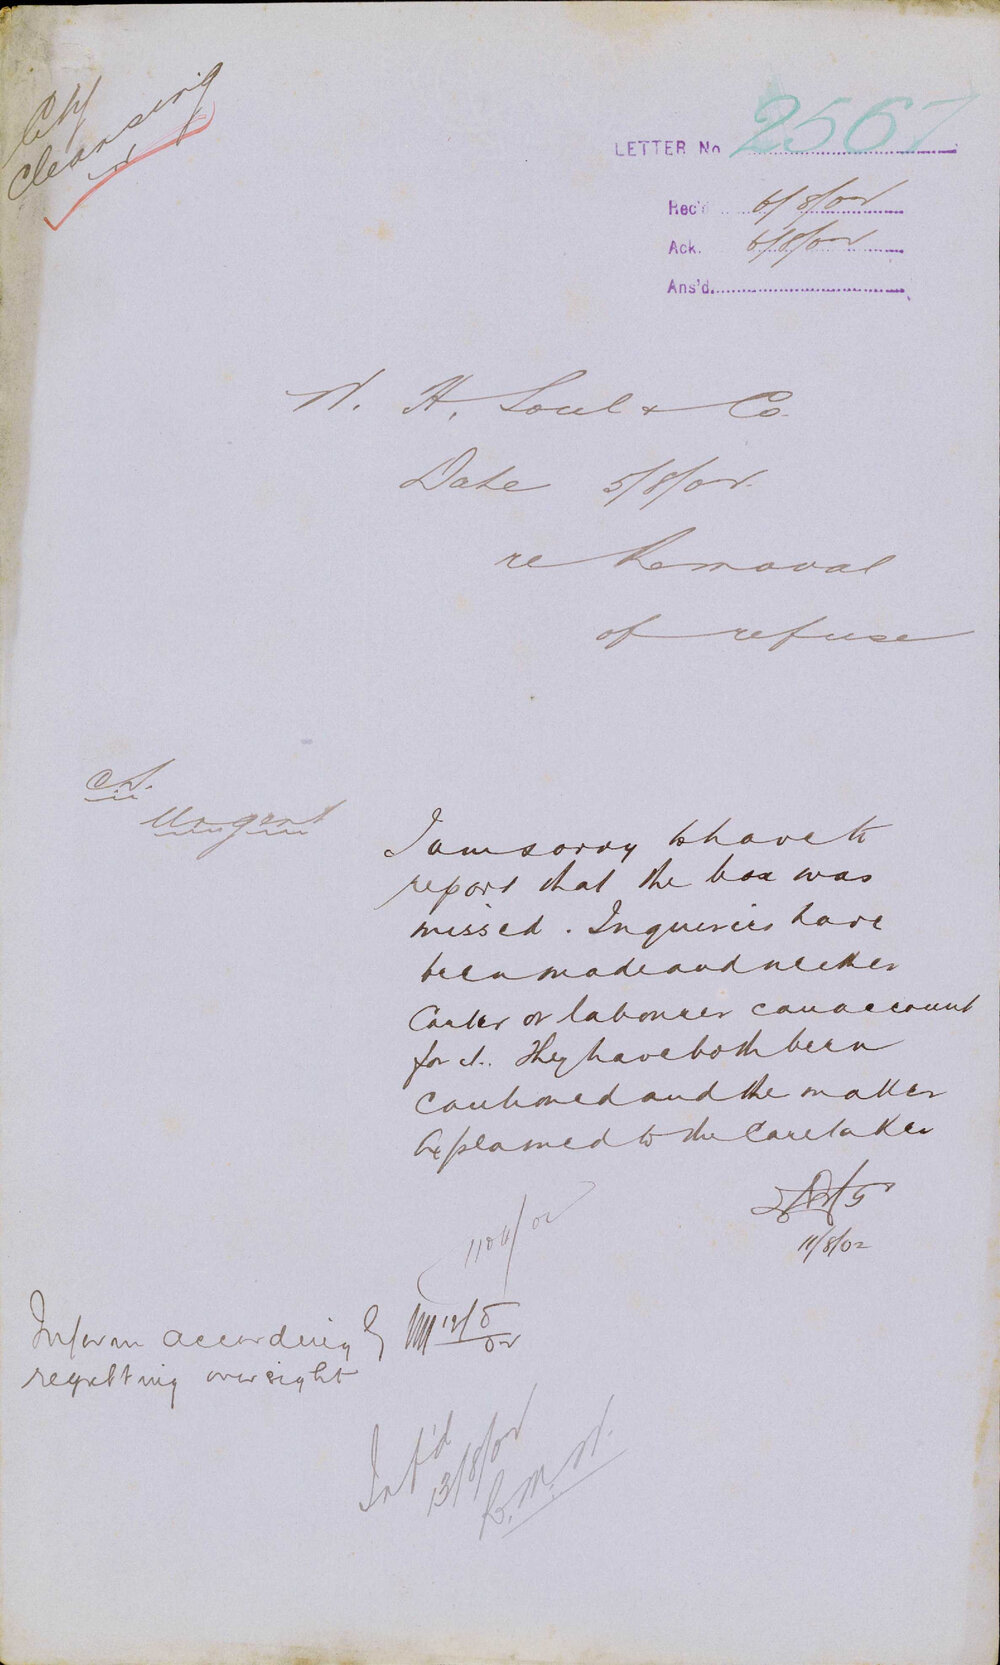 City
Cleansing
LETTER No 2567
Rec'd 6/8/02
Ack. 6/8/02
Ans'd.
W. H. Soul & Co.
Date 5/8/02.
re Removal
of refuse
Urgent
I am sorry to have to
report that the box was
missed. Inquiries have
been made and neither
Carter or labourer can account
for it. They have both been
cautioned and the matter
explained to the Caretaker
11/8/02
1106/02
Inform accordingly
regretting oversight
12/8/02
Inf'd
13/8/02